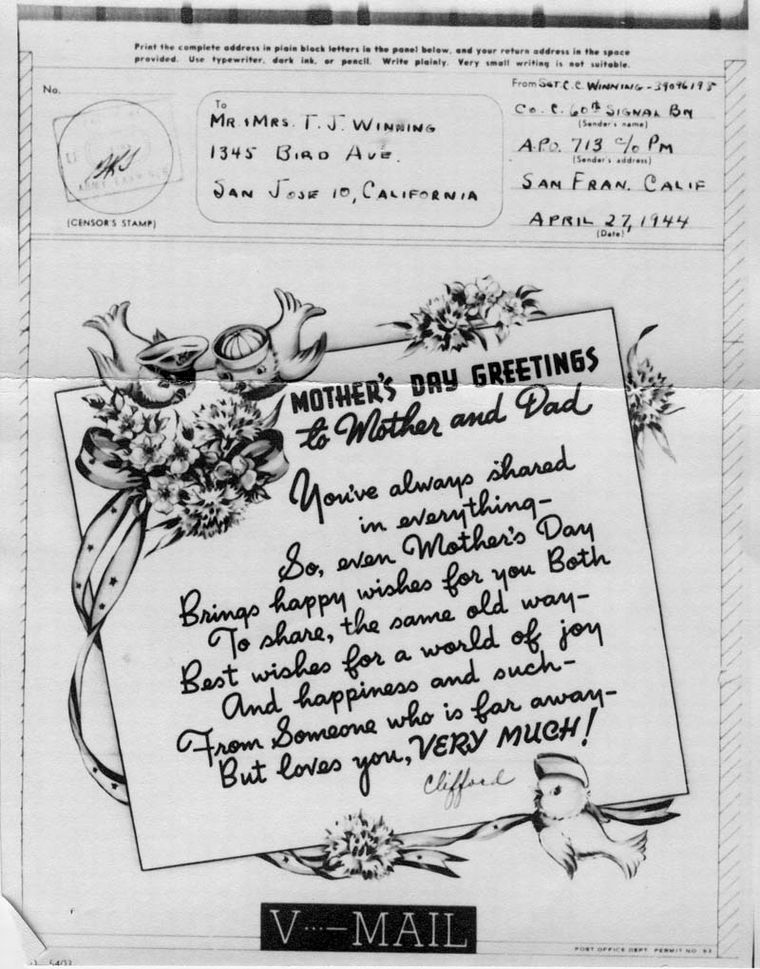 Print the complete address in plain block letters in the panel below, and your return address in the space
provided. Use typewriter, dark ink, or pencil. Write plainly. Very small writing is not suitable.
No.
(CENSOR'S STAMP)
To
MR. & MRS. T. J. WINNING
1345 BIRD AVE.
SAN JOSE 10, CALIFORNIA
From SGT C. C. WINNING - 39096195
CO. C. 60th SIGNAL BN
(Sender's name)
A.P.O. 713 c/o PM
(Sender's address)
SAN FRAN. CALIF
APRIL 27, 1944
(Date)
MOTHER'S DAY GREETINGS
to Mother and Dad
You've always shared
in everything-
So, even Mother's Day
Brings happy wishes for you Both
To share, the same old way-
Best wishes for a world of joy
And happiness and such-
From Someone who is far away-
But loves you, VERY MUCH!
Clifford
V···—MAIL
POST OFFICE DEPT. PERMIT NO. 53